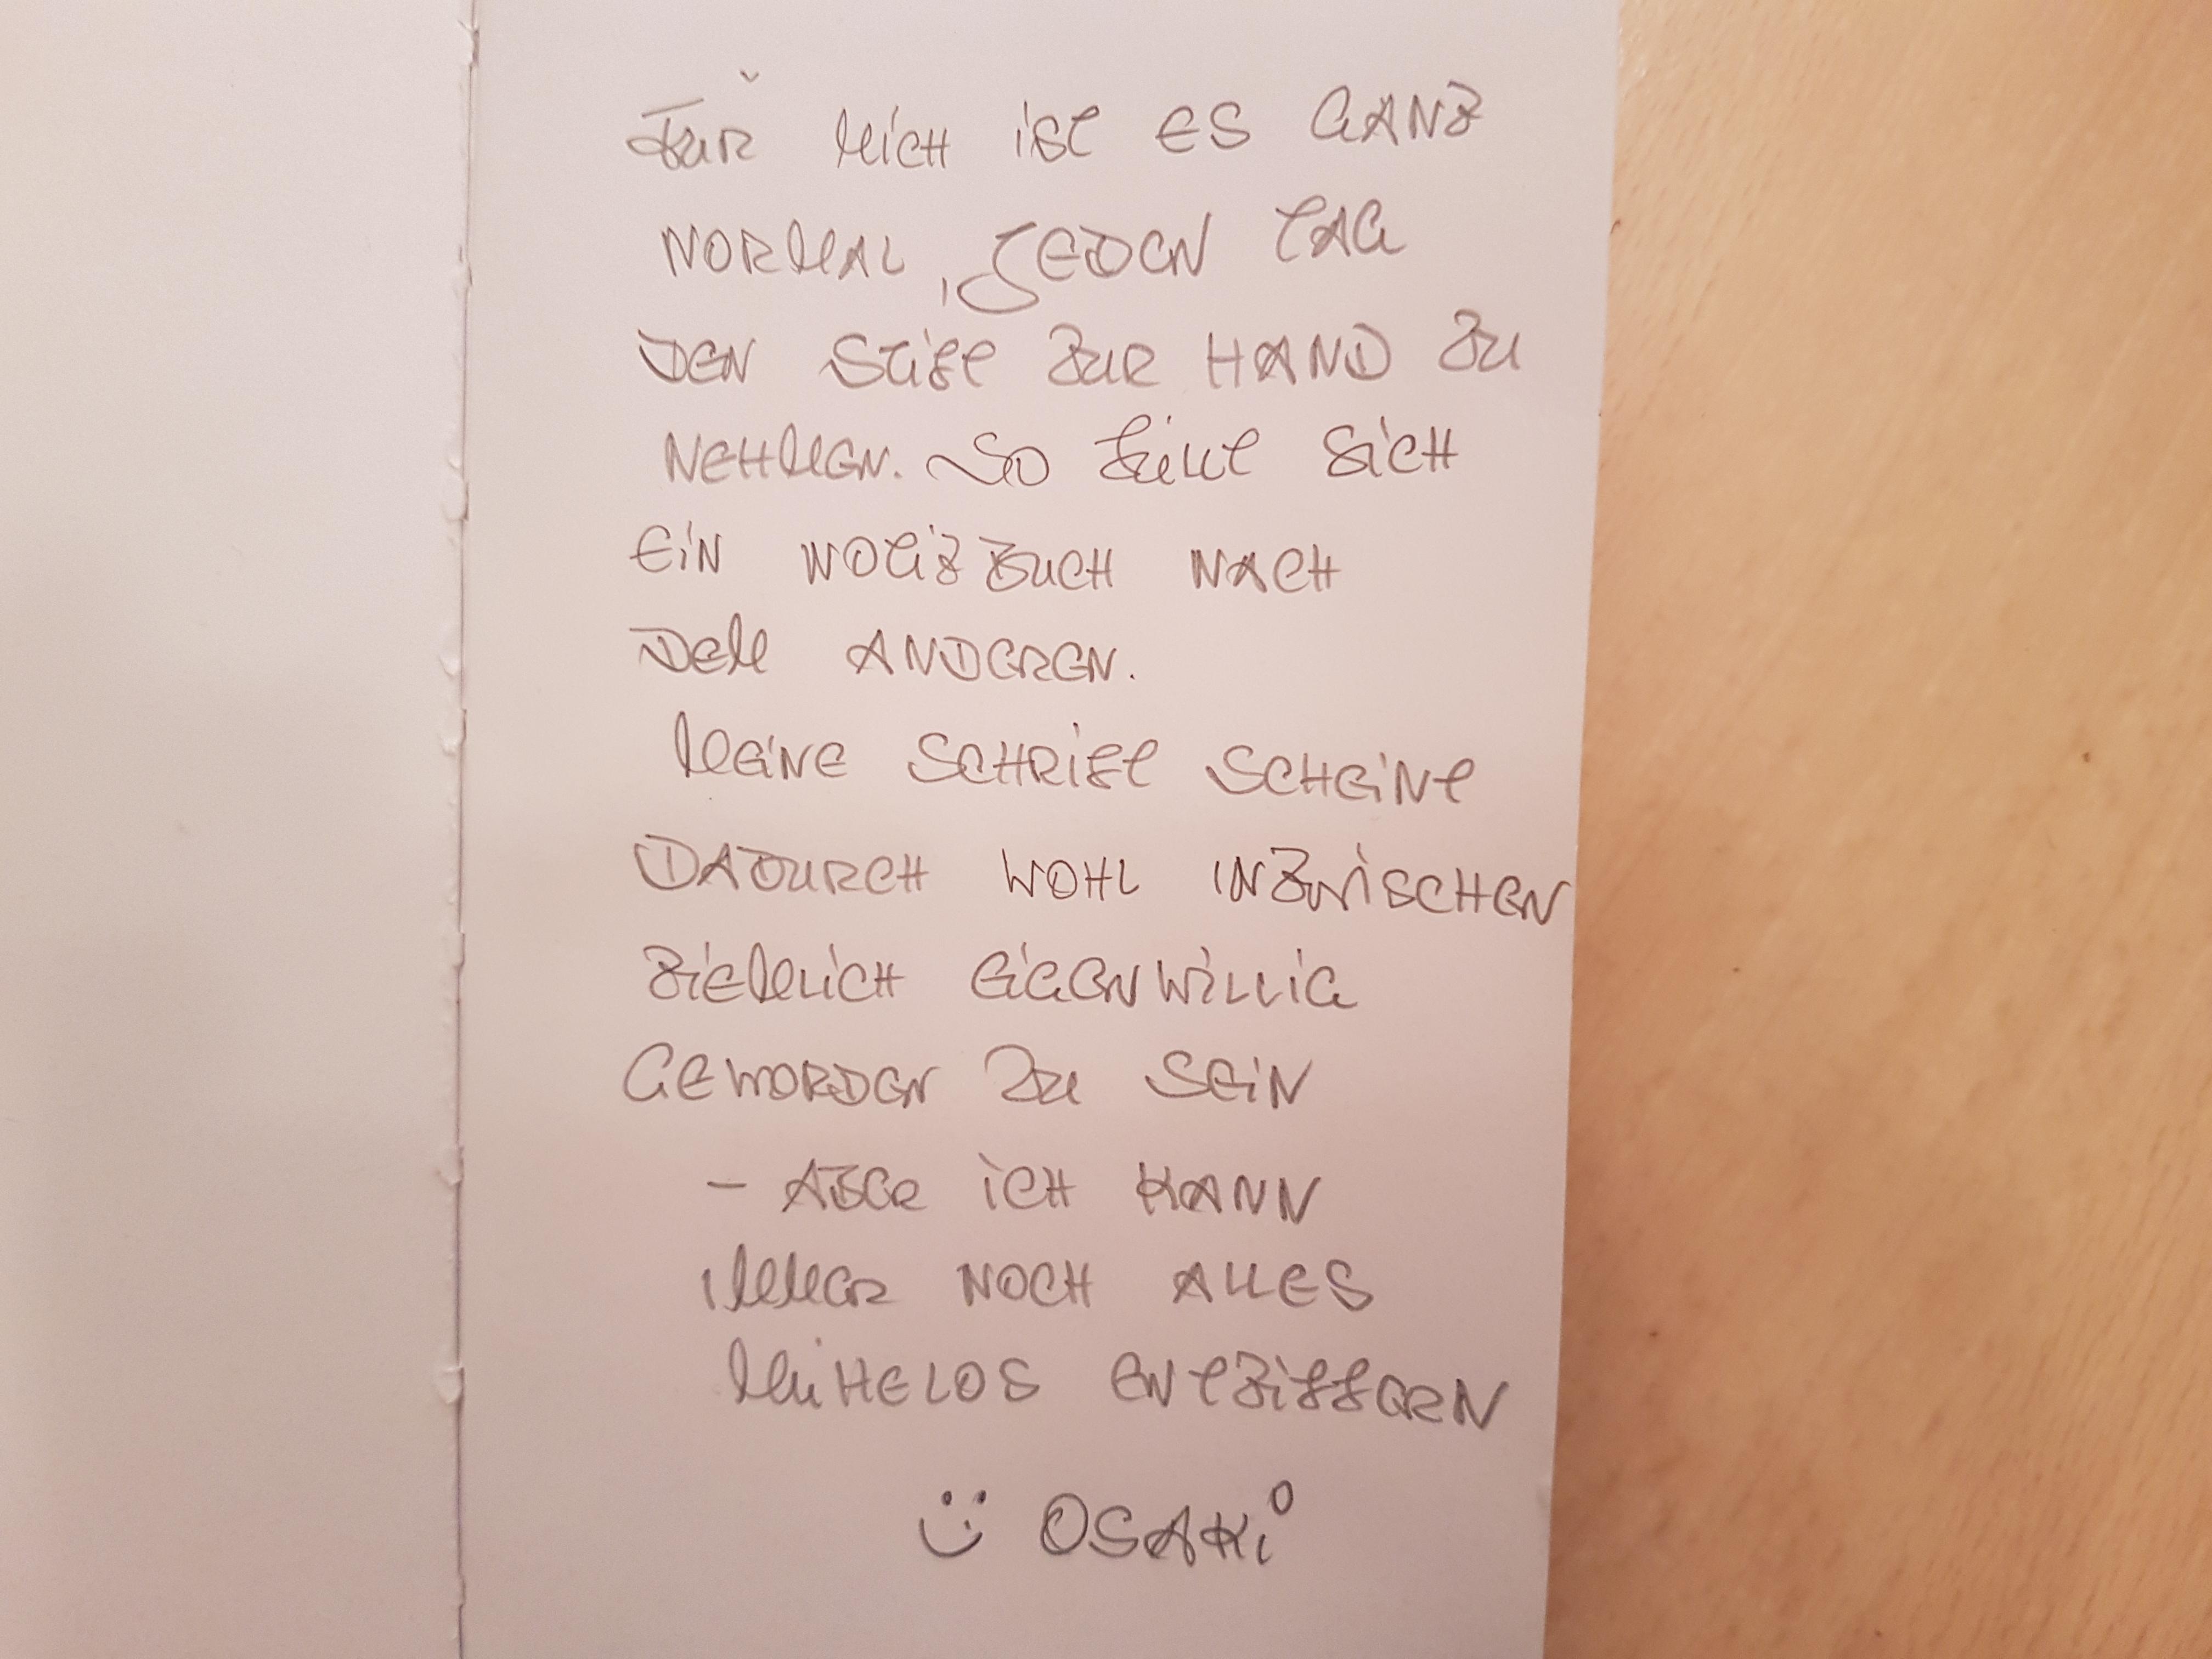 FÜR MICH IST ES GANZ
NORMAL, JEDEN TAG
DEN STIFT ZUR HAND ZU
NEHMEN. SO FÜLLT SICH
EIN NOTIZBUCH NACH
DEM ANDEREN.
MEINE SCHRIFT SCHEINT
DADURCH WOHL INZWISCHEN
ZIEMLICH EIGENWILLIG
GEWORDEN ZU SEIN
– ABER ICH KANN
IMMER NOCH ALLES
MÜHELOS ENTZIFFERN
OSAKI